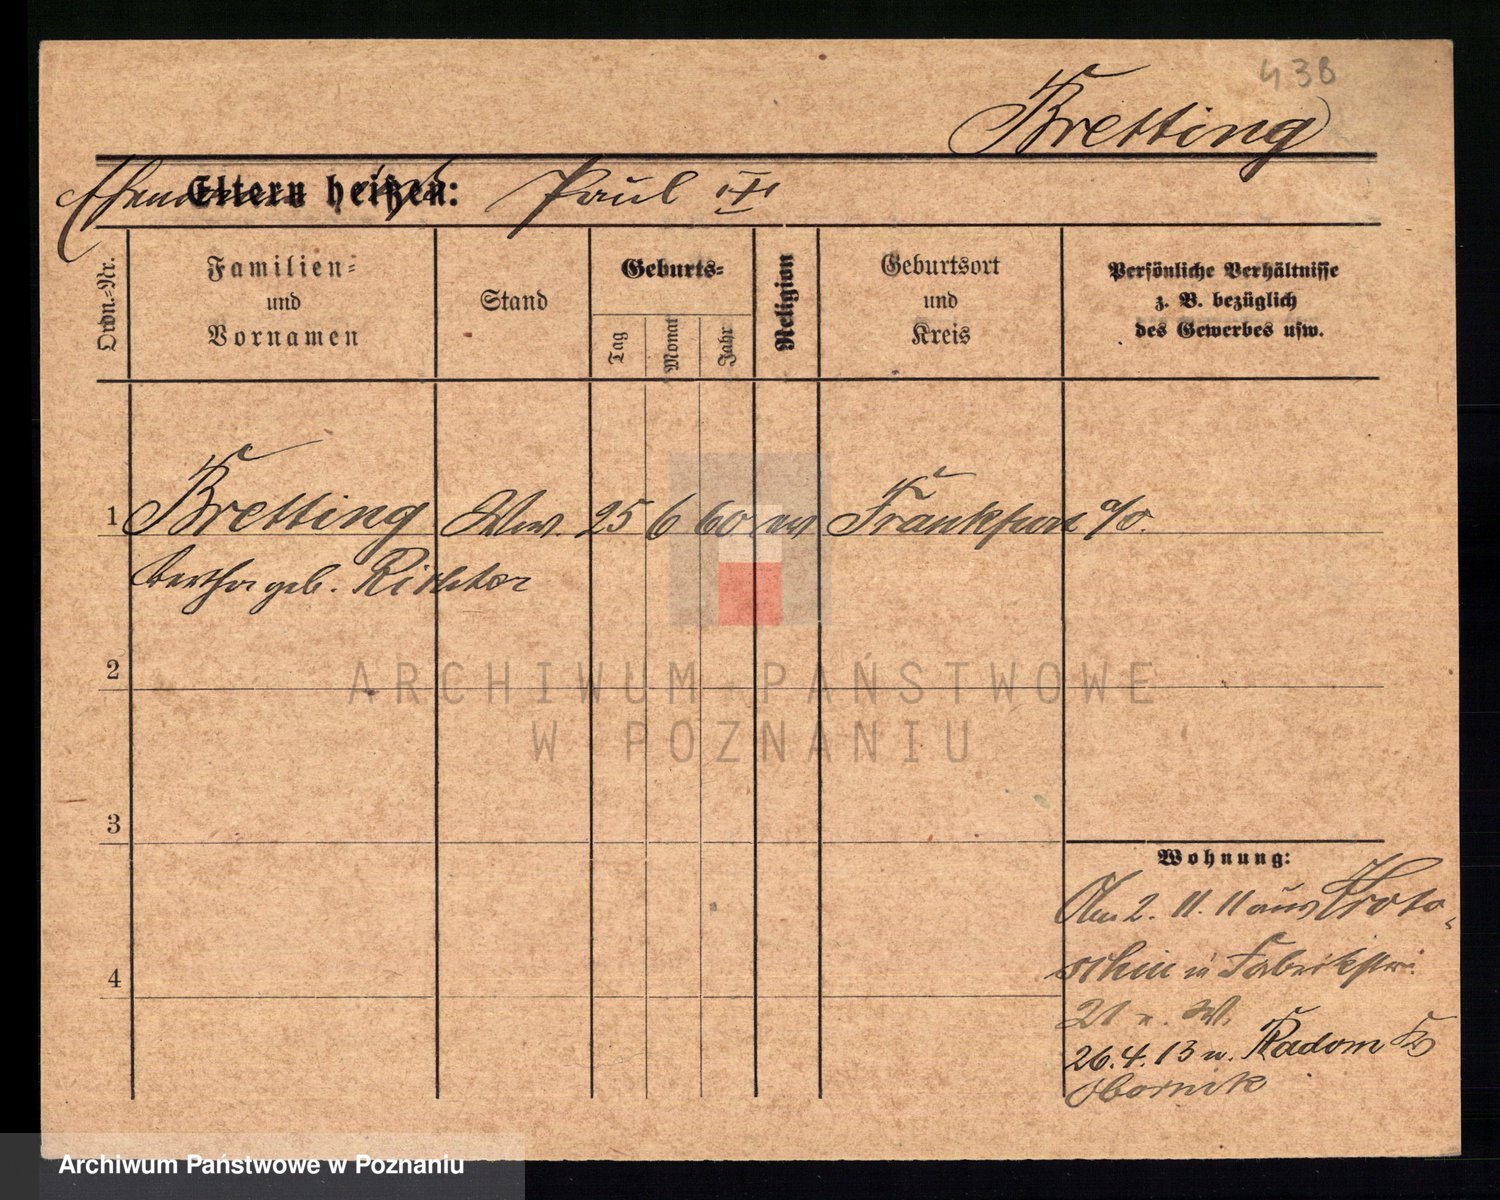 438
Bretting
Eltern heißen: Paul III
Ordn.-Nr.
Familien-
und
Vornamen
Stand
Geburts-
Tag
Monat
Jahr
Religion
Geburtsort
und
Kreis
Persönliche Verhältnisse
z. B. bezüglich
des Gewerbes usw.
1 Bretting Ww. 25 6 60 ev Frankfurt a/O.
Bertha geb. Richter
2
ARCHIWUM PAŃSTWOWE
W POZNANIU
3
Wohnung:
Am 2. 11. 11 aus Kroto-
4
schin n Fabrikstr.
21 n. W.
26.4.13 n. Radom Kr
Obornik
Archiwum Państwowe w Poznaniu